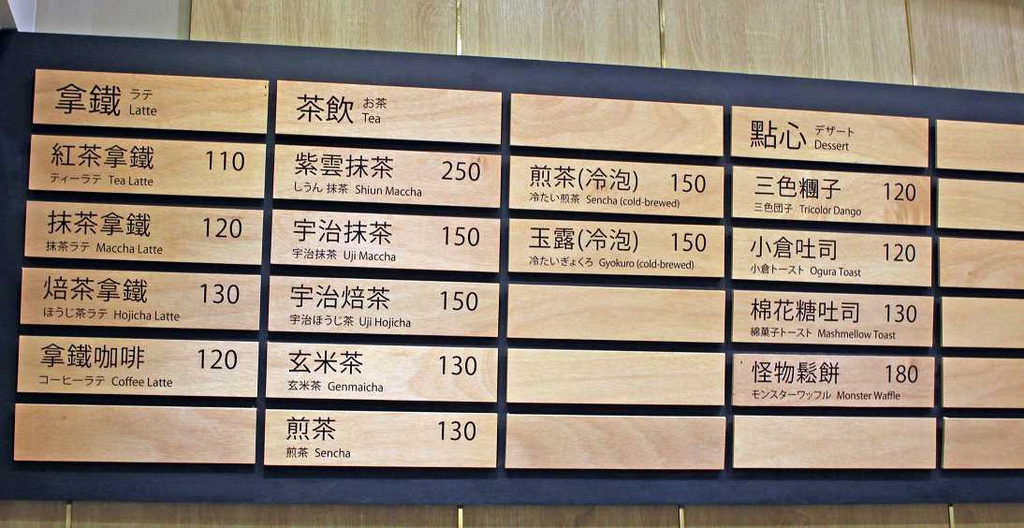 拿鐵 ラテ Latte
紅茶拿鐵 110
ティーラテ Tea Latte
抹茶拿鐵 120
抹茶ラテ Maccha Latte
焙茶拿鐵 130
ほうじ茶ラテ Hojicha Latte
拿鐵咖啡 120
コーヒーラテ Coffee Latte
茶飲 お茶 Tea
紫雲抹茶 250
しうん 抹茶 Shiun Maccha
宇治抹茶 150
宇治抹茶 Uji Maccha
宇治焙茶 150
宇治ほうじ茶 Uji Hojicha
玄米茶 130
玄米茶 Genmaicha
煎茶 130
煎茶 Sencha
煎茶(冷泡) 150
冷たい煎茶 Sencha (cold-brewed)
玉露(冷泡) 150
冷たいぎょくろ Gyokuro (cold-brewed)
點心 デザート Dessert
三色糰子 120
三色団子 Tricolor Dango
小倉吐司 120
小倉トースト Ogura Toast
棉花糖吐司 130
綿菓子トースト Mashmellow Toast
怪物鬆餅 180
モンスターワッフル Monster Waffle